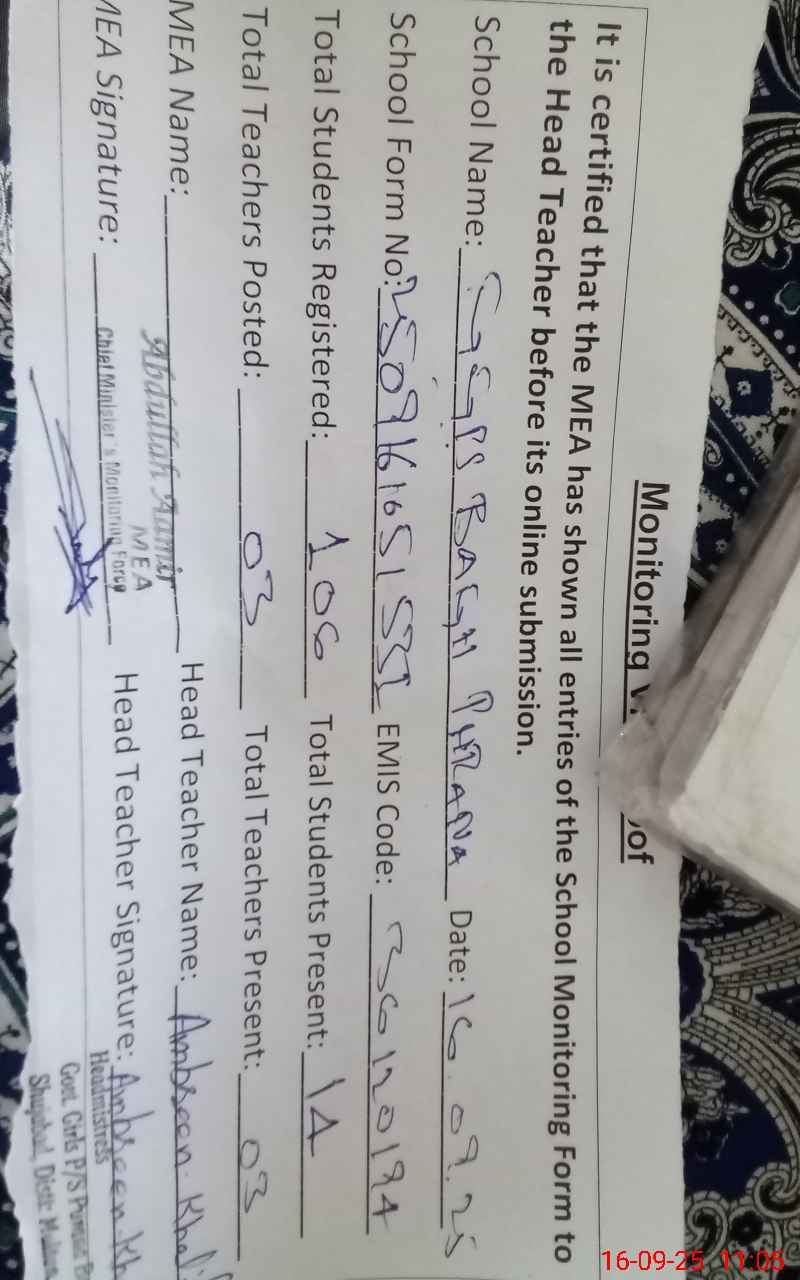 Monitoring of
It is certified that the MEA has shown all entries of the School Monitoring Form to
the Head Teacher before its online submission.
School Name: GGPS BAGH PHRANA Date: 16.09.25
School Form No: EMIS Code: 36120194
Total Students Registered: 106 Total Students Present: 14
Total Teachers Posted: 03 Total Teachers Present: 03
MEA Name: Abdullah Aamir Head Teacher Name: Ambreen Khal
MEA
MEA Signature: Chief Minister's Monitoring Force Head Teacher Signature: Ambreen Kh
Headmistress
Govt. Girls P/S
Shujabad, Distt: Multan
16-09-25 11:05